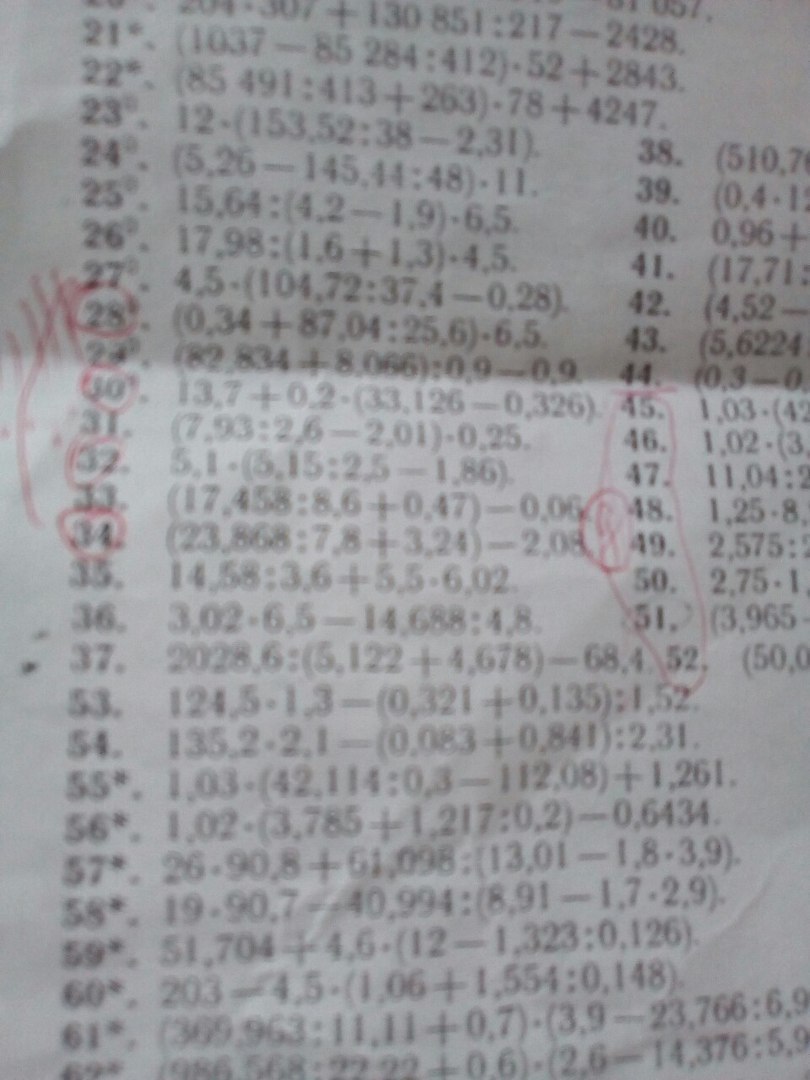 204·307+130 851:217−2428.
21*. (1037−85 284:412)·52+2843.
22*. (85 491:413+263)·78+4247.
23°. 12·(153,52:38−2,31).
24°. (5,26−145,44:48)·11.
25°. 15,64:(4,2−1,9)·6,5.
26°. 17,98:(1,6+1,3)·4,5.
27°. 4,5·(104,72:37,4−0,28).
28°. (0,34+87,04:25,6)·6,5.
29°. (82,834+8,066):0,9−0,9.
30°. 13,7+0,2·(33,126−0,326).
31. (7,93:2,6−2,01)·0,25.
32. 5,1·(5,15:2,5−1,86).
33. (17,458:8,6+0,47)−0,06
34. (23,868:7,8+3,24)−2,08
35. 14,58:3,6+5,5·6,02.
36. 3,02·6,5−14,688:4,8.
37. 2028,6:(5,122+4,678)−68,4.
38. (510,76
39. (0,4·12
40. 0,96+
41. (17,71:
42. (4,52−
43. (5,6224
44. (0,3−0
45. 1,03·(42
46. 1,02·(3,
47. 11,04:2
48. 1,25·8,
49. 2,575:2
50. 2,75·1
51. (3,965
52. (50,0
53. 124,5·1,3−(0,321+0,135):1,52.
54. 135,2·2,1−(0,083+0,841):2,31.
55*. 1,03·(42,114:0,3−112,08)+1,261.
56*. 1,02·(3,785+1,217:0,2)−0,6434.
57*. 26·90,8+61,098:(13,01−1,8·3,9).
58*. 19·90,7−40,994:(8,91−1,7·2,9).
59*. 51,704+4,6·(12−1,323:0,126).
60*. 203−4,5·(1,06+1,554:0,148).
61*. (369,963:11,11+0,7)·(3,9−23,766:6,9
62*. (986,568:22,22+0,6)·(2,6−14,376:5,9